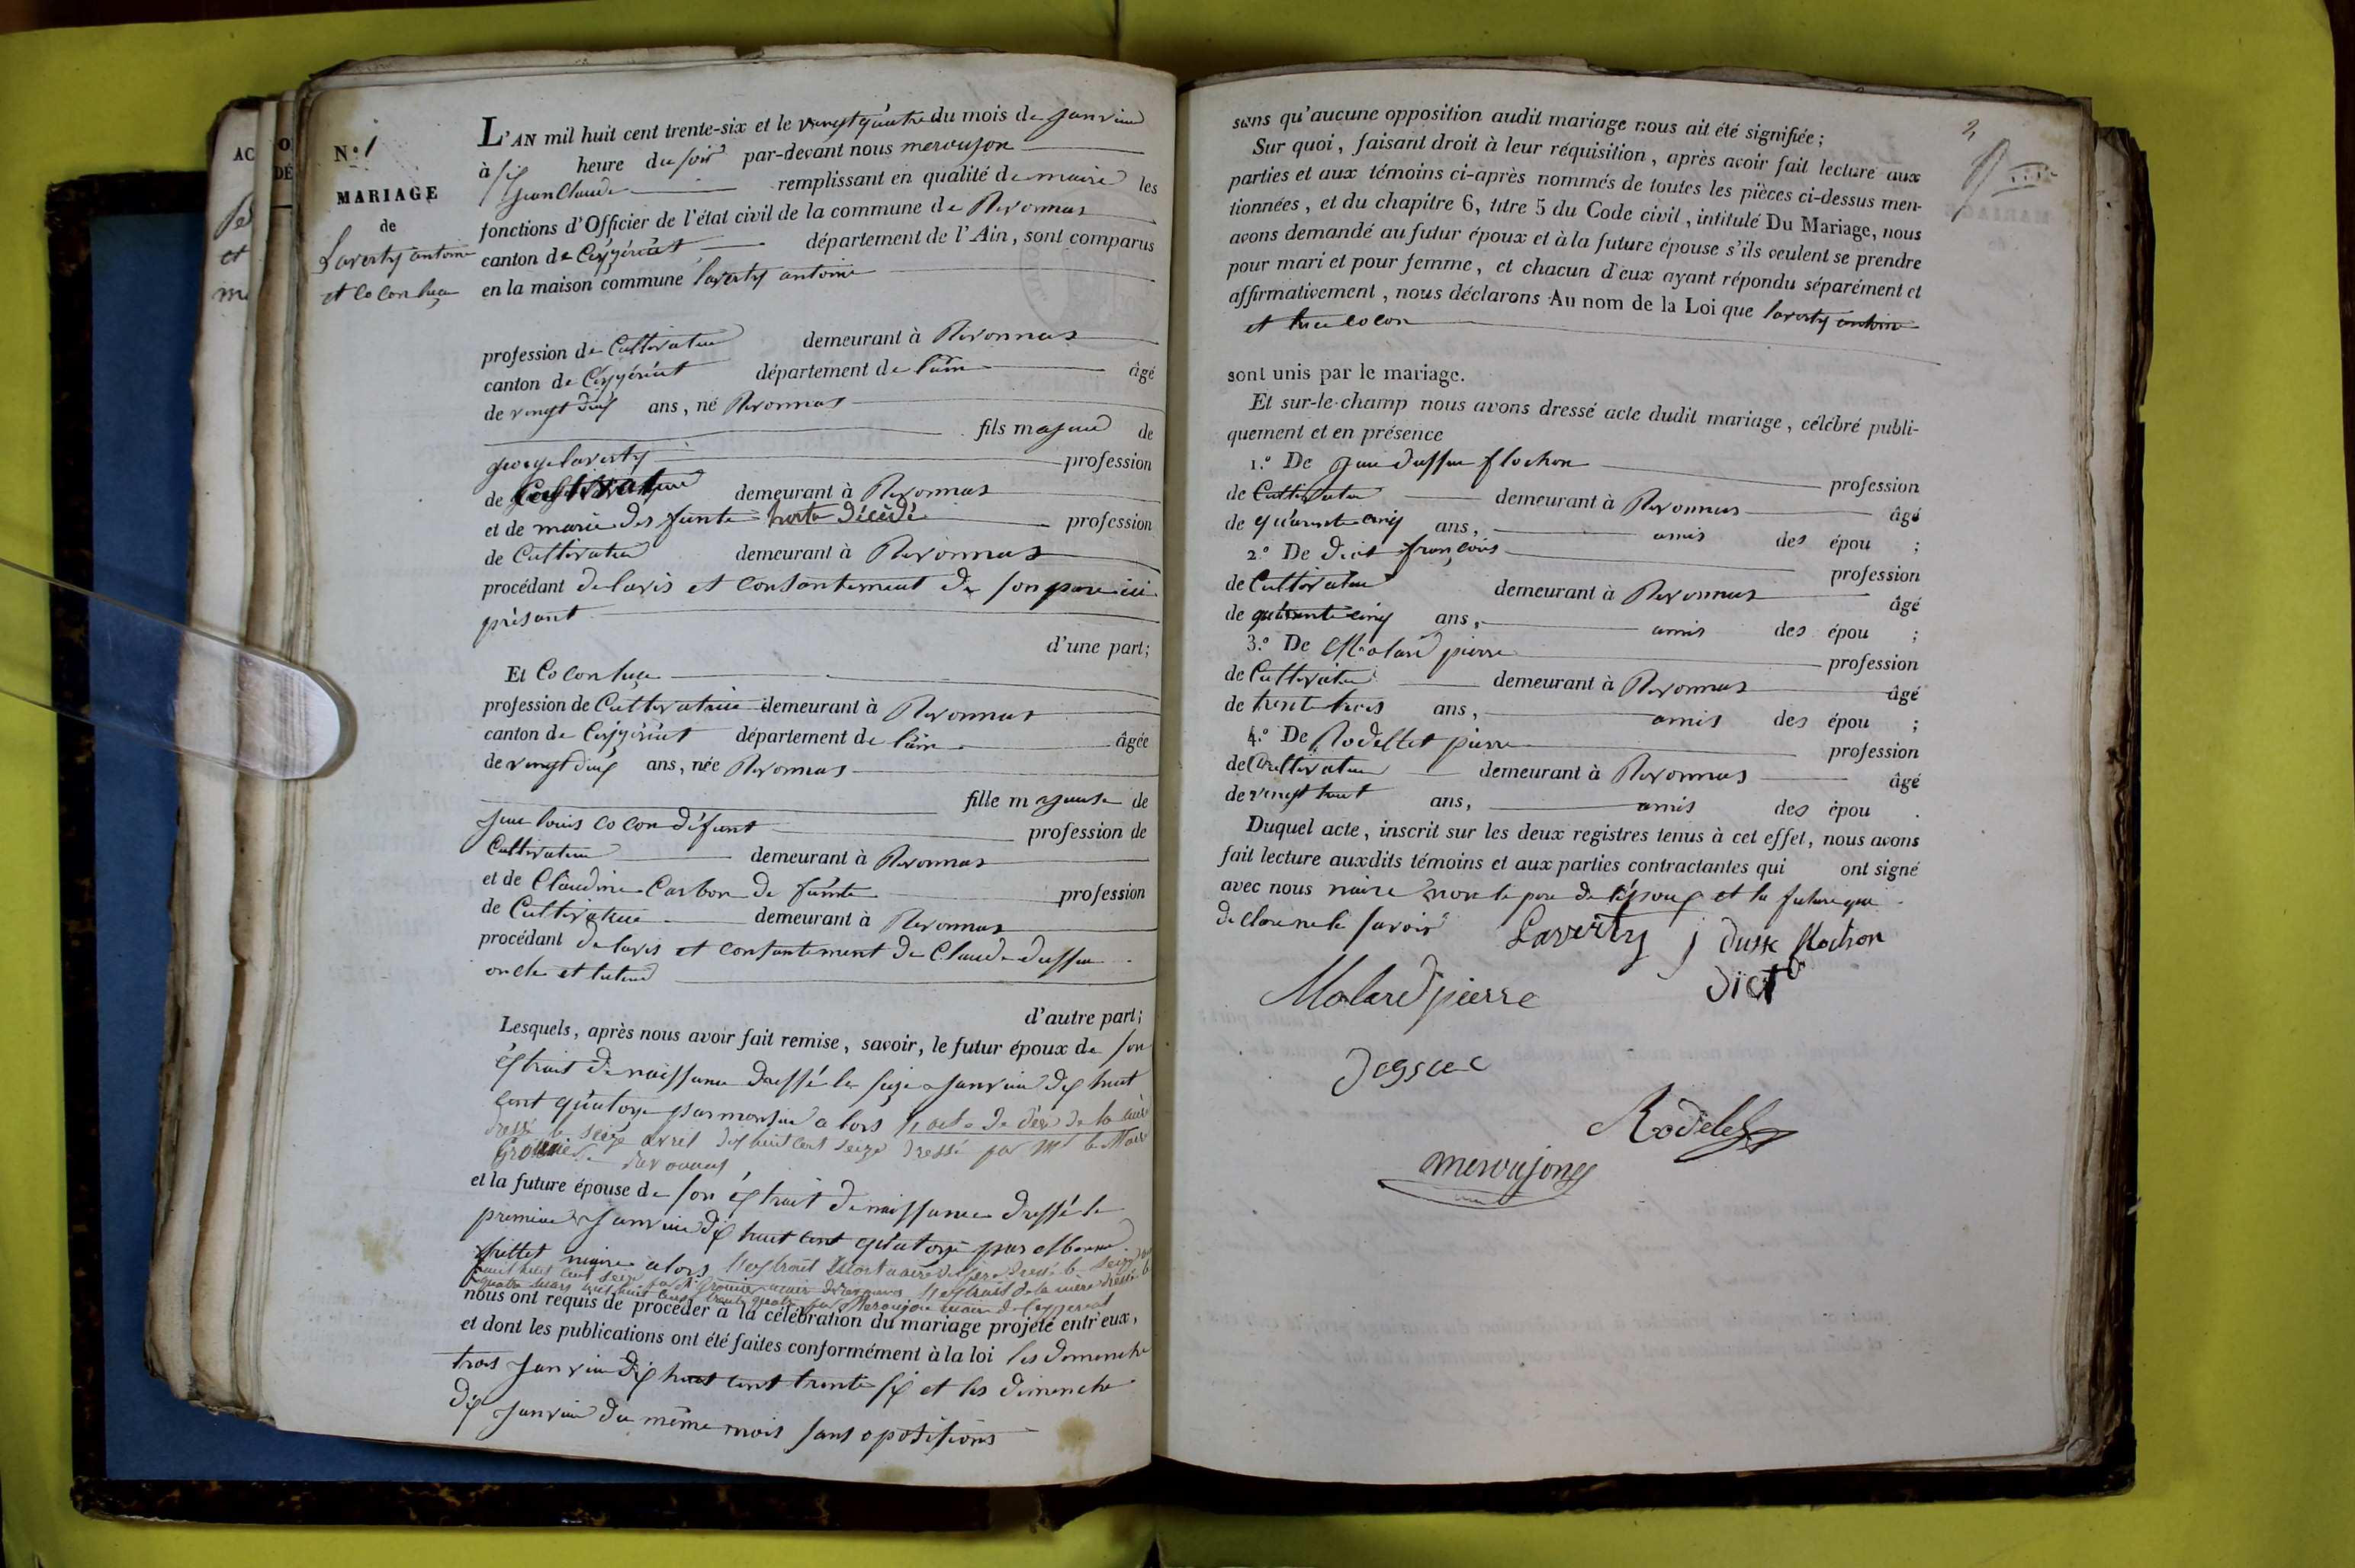 AC
O
DÉ
et
N.º 1
MARIAGE
de
Laverty antoine
et Cocon luce
L'AN mil huit cent trente-six et le vingt quatre du mois de janvier
à six heure du soir par-devant nous meroujon
jean Claude remplissant en qualité de maire les
fonctions d'Officier de l'état civil de la commune de Revonnas
canton de Ceyzériat département de l'Ain, sont comparus
en la maison commune laverty antoine
profession de Cultivateur demeurant à Revonnas
canton de Ceyzériat département de l'ain âgé
de vingt deux ans, né Revonnas
fils majeur de
george laverty profession
de Cultivateur demeurant à Revonnas
et de marie des funte décédé profession
de Cultivateur demeurant à Revonnas
procédant de lavis et consantement de son pere ici
présant
d'une part;
Et Cocon luce
profession de Cultivatrice demeurant à Revonnas
canton de Ceyzériat département de l'ain âgée
de vingt deux ans, née Revonnas
fille majeure de
jean louis cocon défunt profession de
Cultivateur demeurant à Revonnas
et de Claudine Carbon de funte profession
de Cultivatrice demeurant à Revonnas
procédant de lavis et consantement de Claude dussuc
oncle et tuteur
d'autre part;
Lesquels, après nous avoir fait remise, savoir, le futur époux de son
extrait de naissance dressé le seize janvier dix huit
cent quatorze par monsieur alors l'acte de décè de la mère
dressé le seize avril dix huit cent seize dressé par Mr le Maire
revonnas
et la future épouse de son extrait de naissance dressé le
premier janvier dix huit cent quatorze par
maire alors l'extrait mortuaire du père dressé le seize
nous ont requis de procéder à la célébration du mariage projeté entr'eux,
et dont les publications ont été faites conformément à la loi les domenche
trois janvier dix huit cent trente six et les dimenche
dix janvier du même mois sans opositions
2
sans qu'aucune opposition audit mariage nous ait été signifiée;
Sur quoi, faisant droit à leur réquisition, après avoir fait lecture aux
parties et aux témoins ci-après nommés de toutes les pièces ci-dessus men-
tionnées, et du chapitre 6, titre 5 du Code civil, intitulé Du Mariage, nous
avons demandé au futur époux et à la future épouse s'ils veulent se prendre
pour mari et pour femme, et chacun d'eux ayant répondu séparément et
affirmativement, nous déclarons Au nom de la Loi que laverty antoine
et luce cocon
sont unis par le mariage.
Et sur-le-champ nous avons dressé acte dudit mariage, célébré publi-
quement et en présence
1.º De jean dussuc flochon profession
de Cultivateur demeurant à Revonnas âgé
de quarante cinq ans, amis des épou ;
2.º De diot françois profession
de Cultivateur demeurant à Revonnas âgé
de quarante cinq ans, amis des épou ;
3.º De Molard pierre profession
de Cultivateur demeurant à Revonnas âgé
de trente trois ans, amis des épou ;
4.º De Rodellet pierre profession
de Cultivateur demeurant à Revonnas âgé
de vingt huit ans, amis des épou .
Duquel acte, inscrit sur les deux registres tenus à cet effet, nous avons
fait lecture auxdits témoins et aux parties contractantes qui ont signé
avec nous maire non le pere de l'époux et la future qui
declare ne le savoir
Laverty j dusuc flochon
Molard pierre diot
dessuc
Rodelet
meroujon